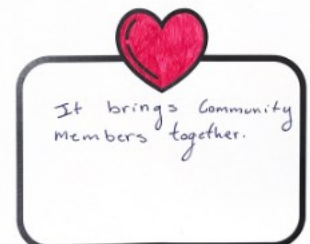 It brings Community
Members together.